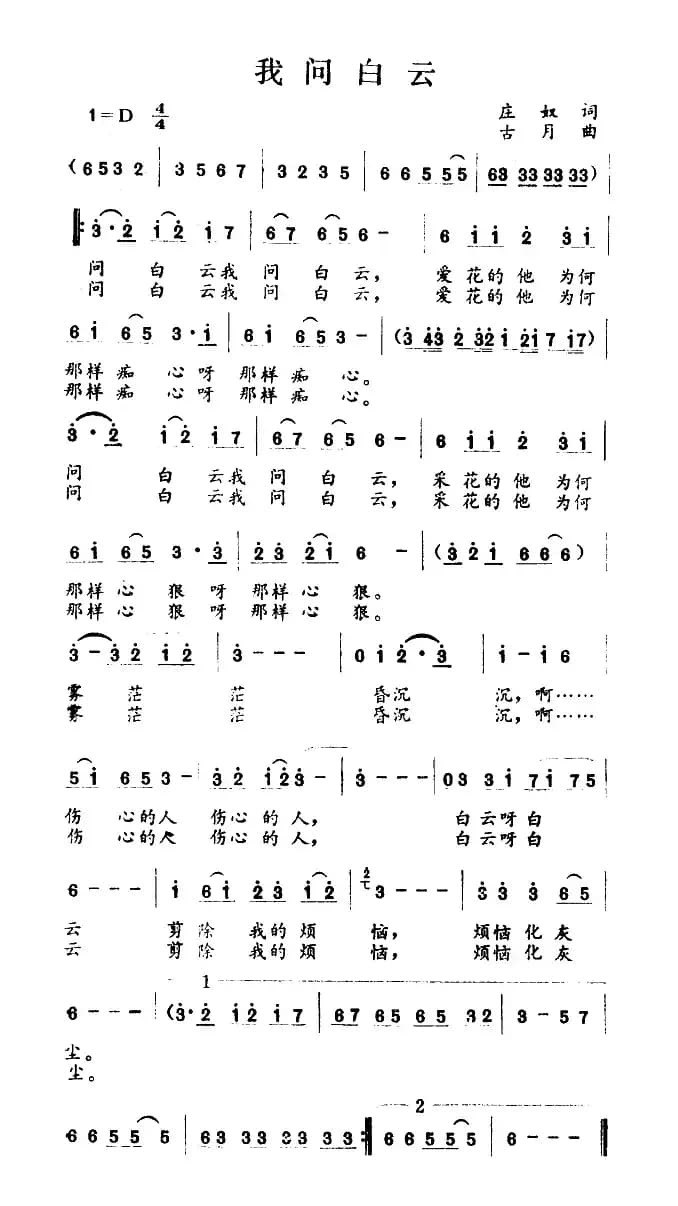 我问白云
1=D 4/4 庄奴 词
古月 曲
(6 5 3 2 | 3 5 6 7 | 3 2 3 5 | 6 6 5 5 5 | 63 33 33 33)
3·2 1 2 1 7 | 6 7 6 5 6 - | 6 1 1 2 3 1
问 白 云我 问 白 云， 爱 花的 他 为何
问 白 云我 问 白 云， 爱 花的 他 为何
6 1 6 5 3·1 | 6 1 6 5 3 - | (3 43 2 32 1 21 7 17)
那样痴 心呀 那样痴 心。
那样痴 心呀 那样痴 心。
3·2 1 2 1 7 | 6 7 6 5 6 - | 6 1 1 2 3 1
问 白 云我 问 白 云， 采 花的 他 为何
问 白 云我 问 白 云， 采 花的 他 为何
6 1 6 5 3·3 | 2 3 2 1 6 - | (3 2 1 6 6 6)
那样心 狠呀 那样心 狠。
那样心 狠呀 那样心 狠。
3 - 3 2 1 2 | 3 - - - | 0 1 2·3 | 1 - 1 6
雾 茫 茫 昏沉 沉，啊……
雾 茫 茫 昏沉 沉，啊……
5 1 6 5 3 - | 3 2 1 2 3 - | 3 - - - | 0 3 3 1 7 1 7 5
伤 心的人 伤心的人， 白云呀白
伤 心的人 伤心的人， 白云呀白
6 - - - | 1 6 1 2 3 1 2 | 3 - - - | 3 3 3 6 5
云 剪除 我的烦 恼， 烦恼化灰
云 剪除 我的烦 恼， 烦恼化灰
1
6 - - - | (3·2 1 2 1 7 | 67 65 65 32 | 3 - 5 7
尘。
尘。
2
6 6 5 5 5 | 63 33 33 33 :| 6 6 5 5 5 | 6 - - -